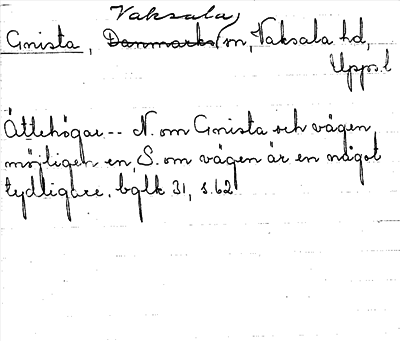 Vaksala
Gnista, Danmarks sn, Vaksala hd,
Upps. l
Ättehögar -- N. om Gnista och vägen,
möjligen en, S. om vägen är en något
tydligare. bglk 31, s. 62